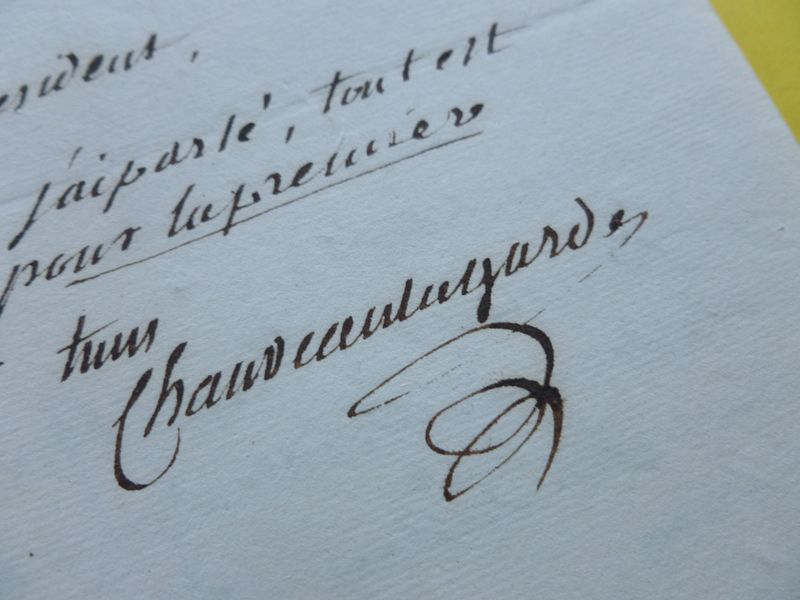 esident,
j'ai parlé, tout est
pour la premier
tuus
Chauveaulagarde